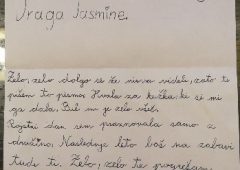 Draga Jasmine.
Zelo, zelo dolgo se že nisva videli, zato ti
pišem to pismo. Hvala za kužka, ki si mi
ga dala. Bil mi je zelo všeč.
Rojstni dan sem praznovala samo z
družino. Naslednje leto boš na zabavi
tudi ti. Zelo, zelo te pogrešam.